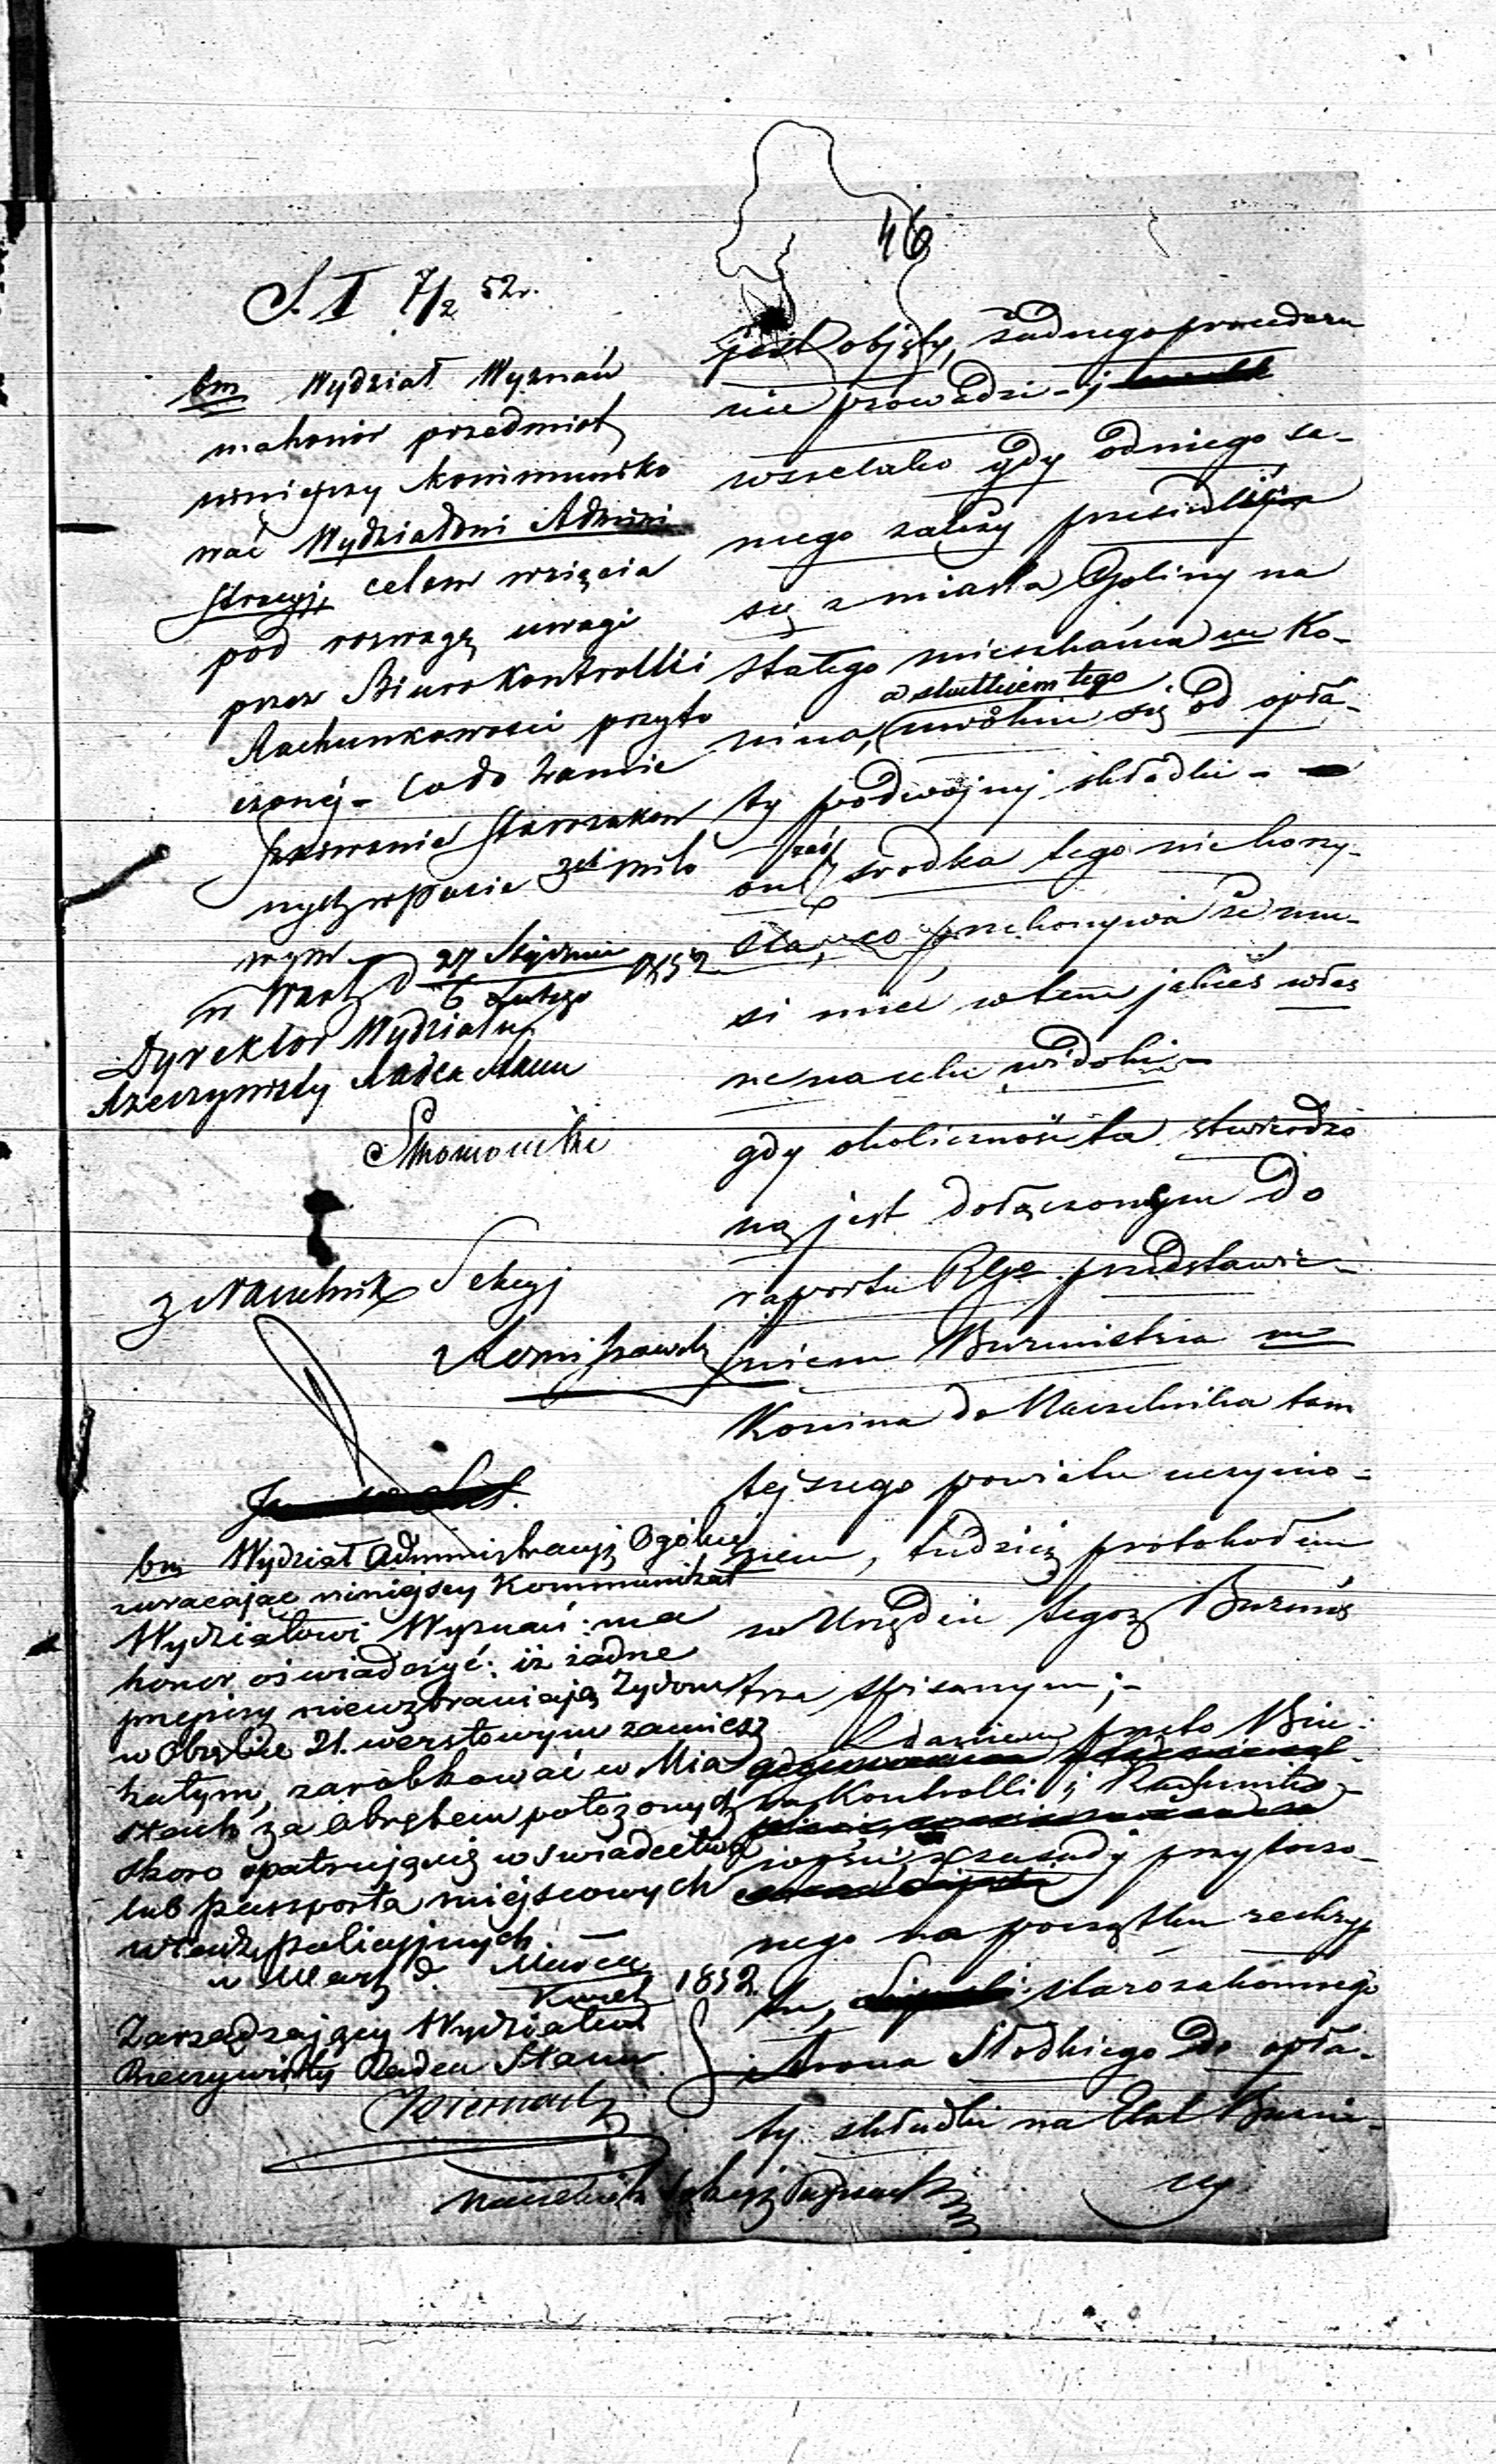 46
S. I 7/2 52r.
bm Wydział Wyznań
ma honór przedmiot
niniejszy kommuniko
wać Wydziałowi Admini
stracyj, celem wzięcia
pod rozwagę uwagi
przez Biuro Kontrolli i
Rachunkowości przyto
czonéj - co do zamie
szkiwania starozakon
nych w pasie 3ch milo
wym
w Warsz. d 27 Stycznia 1852
6 Lutego
Dyrektor Wydziału
Rzeczywisty Radca Stanu
z Naczelnik Sekcyj
bm Wydział Administracyj Ogólnéj
zwracając niniejszy Kommunikat
Wydziałowi Wyznań: ma
honor oświadczyć: iż żadne
przepisy niewzbraniają Żydom
w Obrębie 21. werstowym zamiesz
kałym, zarobkować w Mia
stach za obrębem położonych
skoro opatrują się w świadectwa
lub passporta miejscowych
władz policyjnych.
w Warsz. d. Marca 1852.
Zarządzający Wydziałem
Rzeczywisty Radca Stanu
Naczelnik Sekcyj
jest objęty, żadnego procederu
nie prowadzi - j
wszelako gdy od niego sa-
mego zależy przesiedlić
się z miasta Goliny na
stałego mieszkańca w Ko-
a skutkiem tego
nina, uwolnić się od opła-
ty podwójnej składki -
on zaś środka tego nie korzy-
sta, co przekonywa że mu-
si mieć w tem jakieś włas
ne na celu widoki -
gdy okoliczność ta stwierdzo
ną jest dołączonym do
raportu Rgo przedstawie-
niem Burmistrza m
Konina do Naczelnika tam
tejszego powiatu uczynio-
nem, tudzież protokołem
w Urzędzie tegoż Burmis
trza spisanym; -
Zdaniem przeto Biu-
ra Kontrolli i Rachunko-
wości, z zasady przytoczo-
nego na początku reskryp
tu, starozakonnego
Arona Słodkiego do opła-
ty składki na Etat Buźni-
cy